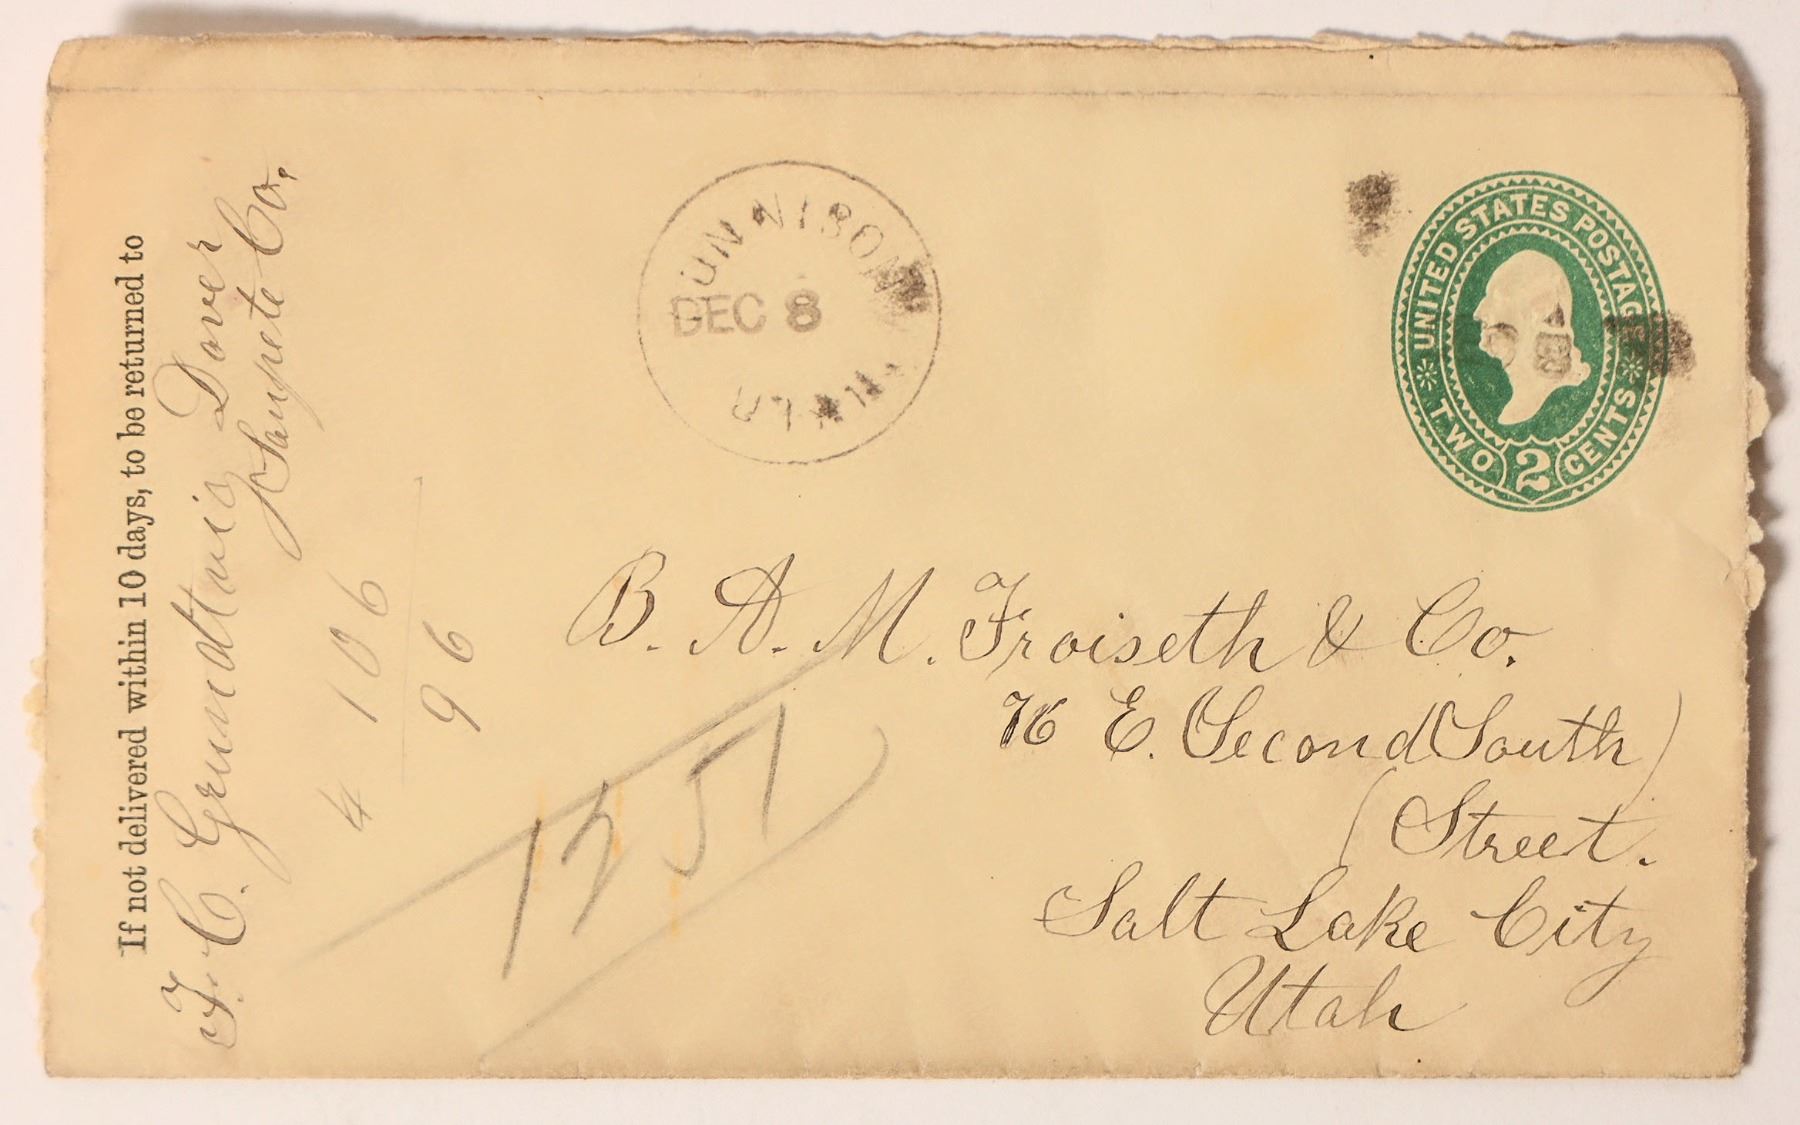 If not delivered within 10 days, to be returned to
F. C. Grundtvig Dover
Sanpete Co.
4 106
96
GUNNISON
DEC 8
UTAH
UNITED STATES POSTAGE
TWO 2 CENTS
B. A. M. Froiseth & Co.
76 E. Second South
Street.
Salt Lake City
Utah
1251